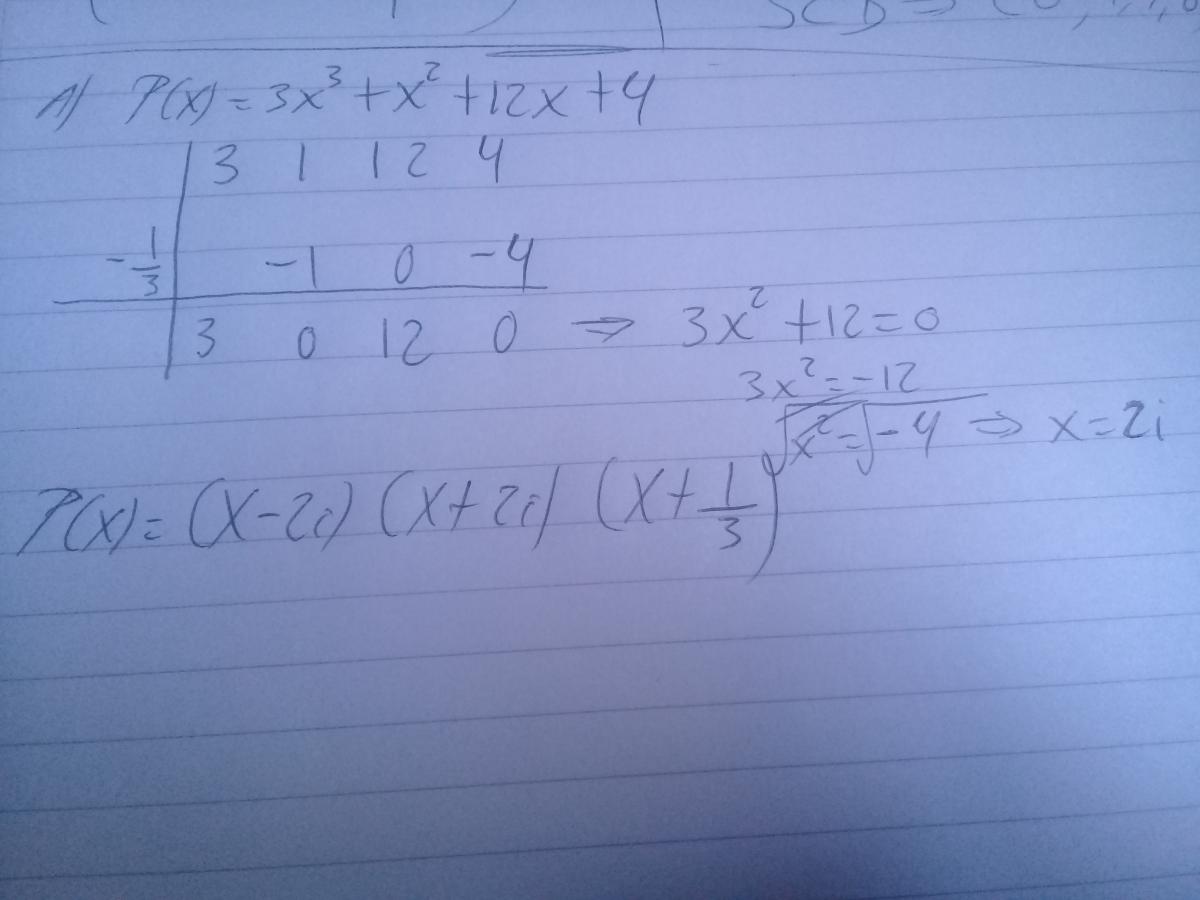 SCD ⇒ (0,
A) P(x) = 3x³ + x² + 12x + 4
3 1 12 4
-1/3 -1 0 -4
3 0 12 0 ⇒ 3x² + 12 = 0
3x² = -12
√x² = √-4 ⇒ x = 2i
P(x) = (x - 2i) (x + 2i) (x + 1/3)